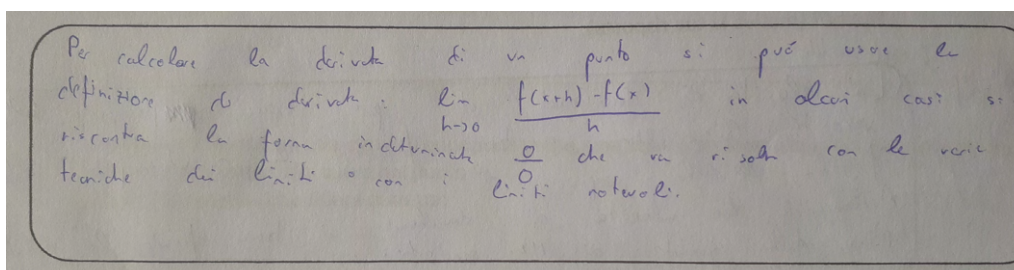 Per calcolare la derivata di un punto si può usare la
definizione di derivata: lim h->0 f(x+h) - f(x) / h in alcuni casi si
riscontra la forma indeterminata 0/0 che va risolta con le varie
tecniche dei limiti o con i limiti notevoli.